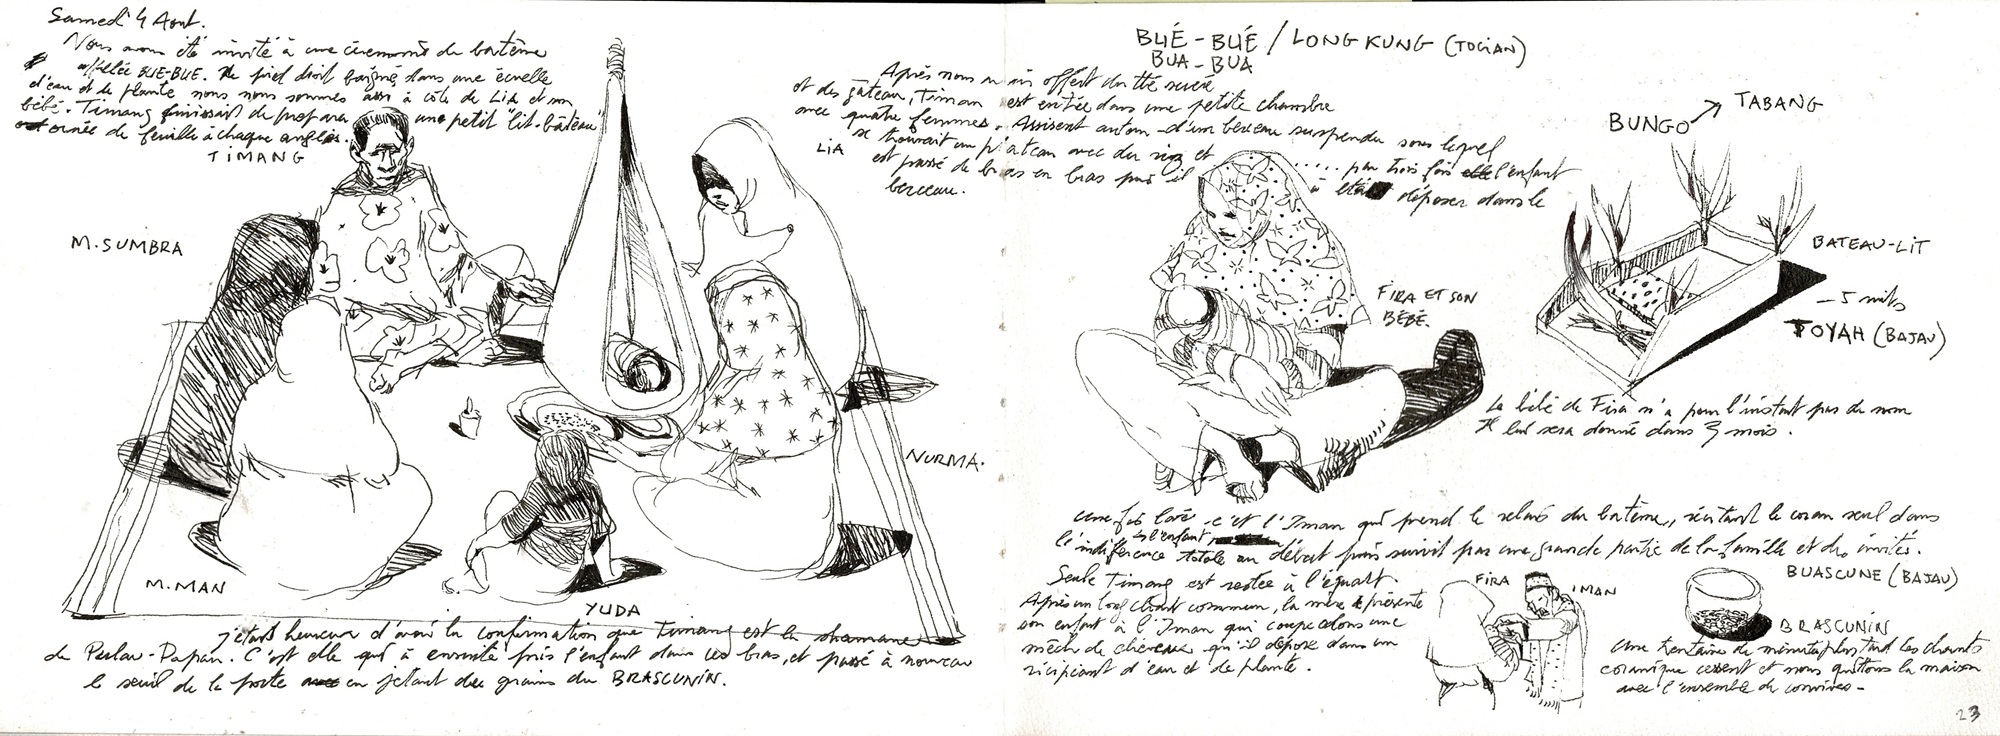 Samedi 4 Aout.
Nous avons été invité à une cérémonie de batême
appelée BUE-BUE. Le pied droit baigné dans une écuelle
d'eau et de plante nous nous sommes assi à côté de LIA et son
bébé. Timang finissait de préparer une petit "lit-bâteau"
ornée de feuille à chaque angles.
TIMANG
M. SUMBRA
M. MAN
YUDA
NURMA.
LIA
j'étais heureux d'avoir la confirmation que Timang est la shamane
de Perlau-Papan. C'est elle qui à ensuite pris l'enfant dans ces bras, et passé à nouveau
le seuil de la porte en jetant des grains du BRASCUNIN.
BUÉ-BUÉ / LONG KUNG (TOGIAN)
BUA-BUA
Après nous avoir offert du thé sucré
et des gâteau, Timang est entrée dans une petite chambre
avec quatre femmes. Assisent autour d'un berceau suspendu sous lequel
se trouvait un plateau avec du riz et
est passé de bras en bras puis il
berceau.
..... par trois fois l'enfant
à été déposer dans le
BUNGO → TABANG
BATEAU-LIT
- 5 nuits
TOYAH (BAJAU)
FIRA ET SON
BÉBÉ.
Le bébé de Fira n'a pour l'instant pas de nom
Il lui sera donné dans 3 mois.
Une fois lavé l'enfant c'est l'Iman qui prend le relais du batême, récitant le coran seul dans
l'indifférence totale au début puis suivit par une grande partie de la famille et des invités.
Seule Timang est restée à l'écart.
Après un long chant commun, la mère présente
son enfant à l'Iman qui coupe alors une
mèche de cheveux qu'il dépose dans un
récipient d'eau et de plante.
FIRA
IMAN
BUASCUNE (BAJAU)
BRASCUNIN
Une trentaine de minute plus tard les chants
coranique cessent et nous quittons la maison
avec l'ensemble de convives -
23